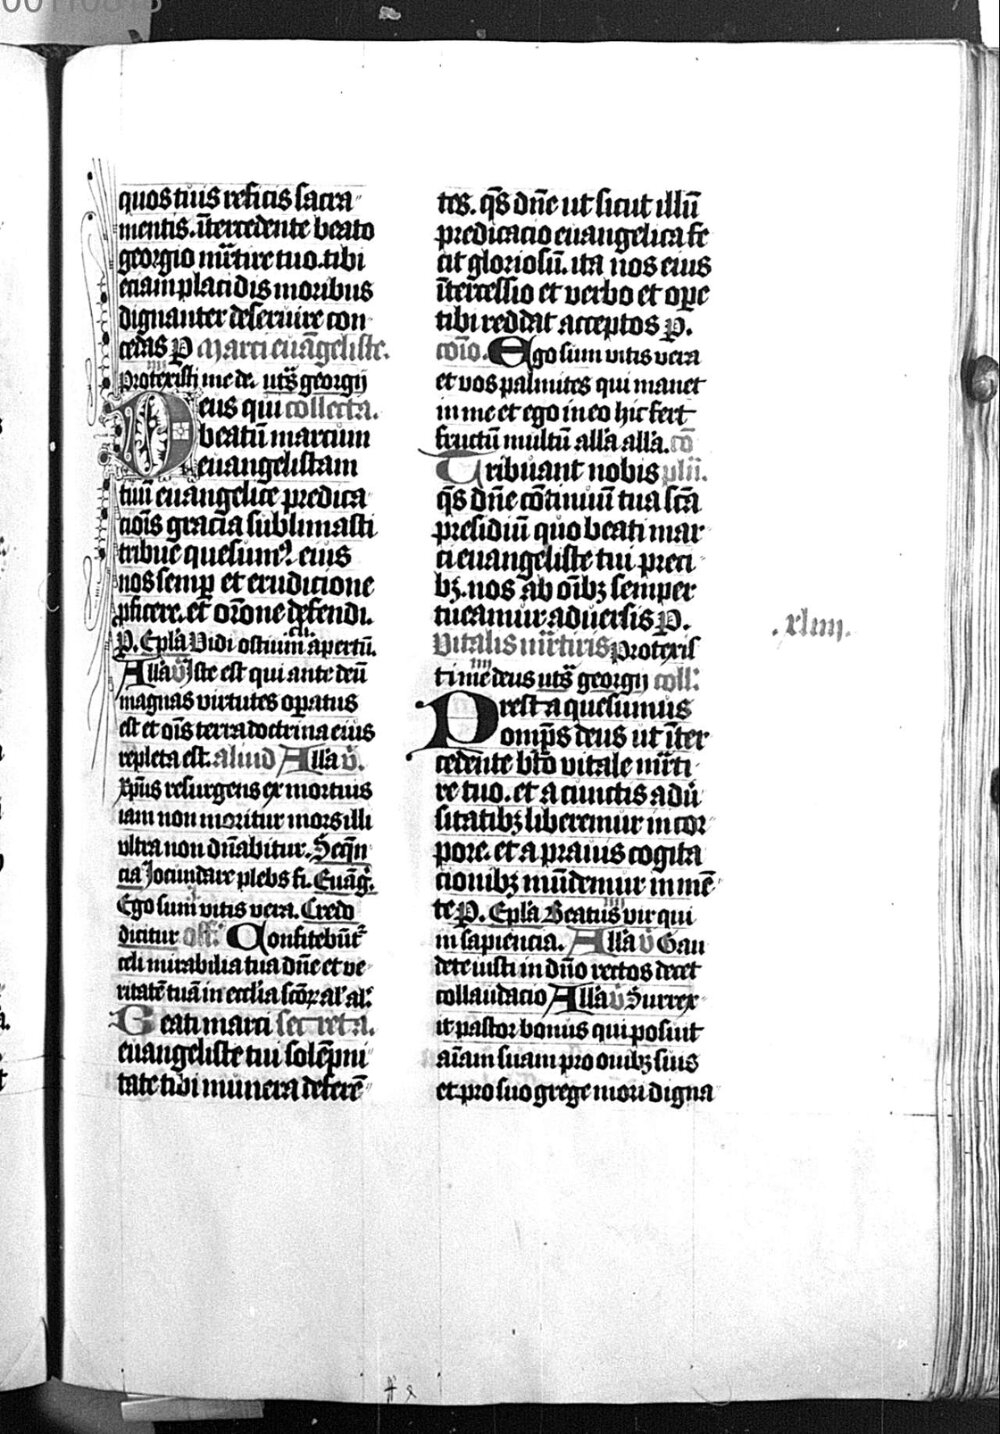 quos tuis reficis sacra
mentis. īterredente beato
georgio mr̄tire tuo. tibi
etiam placidis moribus
dignanter deseruire con
cedas P Marci euāngeliste.
Protexisti me de. uts̄ georgij
Deus qui collecta.
beatū marcum
euangelistam
tuū euangelice predica
cioīs gracia sublimasti
tribue quesumꝰ. eius
nos semꝑ et erudicione
ꝓficere. et or̄one defendi.
P. Epl̄a Vidi ostium apertū.
All̄a v̄ Iste est qui ante deū
magnas virtutes oꝑatus
est et oīs terra doctrina eius
repleta est. aliud All̄a v̄.
xp̄us resurgens ex mortuis
iam non moritur mors illi
vltra non dn̄abitur. Seq̄n
cia Jocundare plebs fi. Euāḡ.
Ego sum vitis vera. Credo
dicitur off. Confitebūt̄
celi mirabilia tua dn̄e et ve
ritatē tuā in ecclīa scōꝝ al̄ al̄.
Beati marci secreta.
euangeliste tui solēpni
tate tibi munera deferē
tes. qs̄ dn̄e ut sicut illū
predicacio euangelica fe
cit gloriosū. ita nos eius
ītercessio et verbo et oꝑe
tibi reddat acceptos P.
cōīo. Ego sum vitis vera
et vos palmites qui manet
in me et ego in eo hic fert
fructū multū all̄a all̄a. cō
Tribuant nobis plīī.
qs̄ dn̄e cōtinuū tua scā
presidiū quo beati mar
ci euangeliste tui preci
bꝫ. nos ab oībꝫ semper
tueamur aduersis P.
Vitalis mr̄tiris Protexis
ti me deus uts̄ georgij coll.
Presta quesumus
omp̄s deus ut īter
cedente bt̄o vitale mr̄ti
re tuo. et a cunctis adū
sitatibꝫ liberemur in cor
pore. et a prauis cogita
cionibꝫ mūdemur in mē
te P. Epl̄a Beatus vir qui
in sapiencia. All̄a v̄ Gau
dete iusti in dn̄o rectos decet
collaudacio All̄a v̄ Surrex
it pastor bonus qui posuit
aīam suam pro ouibꝫ suis
et pro suo grege mori digna
.xliiij.